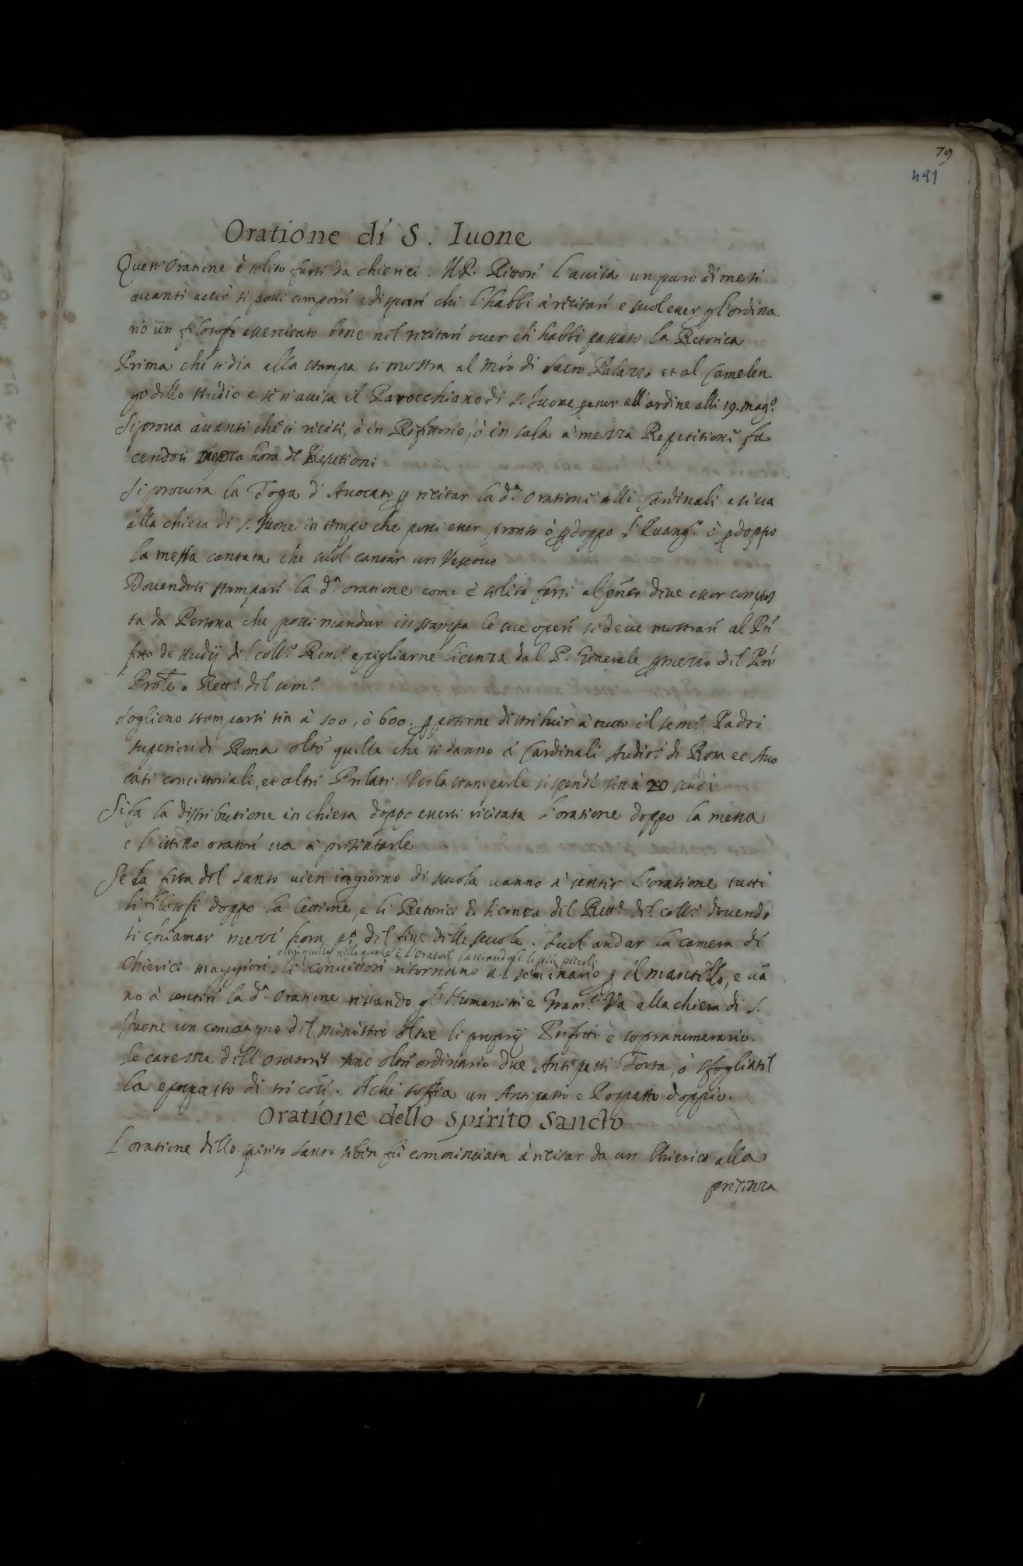 79
491
Oratione di S. Iuone
Quest'Oratione è solito farsi da chierici. Il P. Rettore l'auisa un paro di mesi
auanti acciò si possi comporre e disporre chi l'habbi à recitare e suol esser per l'ordina
rio un filosofo essercitato bene nel recitare ouer che habbi passato la Retorica
Prima che si dia alla stampa si mostra al Mro di Sacro Palazzo et al Camelen
go dello studio e si n'auisa il Parocchiano di S. Iuone all'ordine alli 19. Magº.
Si proua auanti che si reciti, ò in Refettorio, ò in sala a mezza Repetitione fa
cendosi mezza hora de Repetitioni
Si procura la Toga d'Auocato per recitar la dª. oratione alli Cardinali e si ua
alla chiesa di S. Iuone in tempo che possi esser pronto ò doppo l'Euangº. ò doppo
la messa cantata che suol cantar un Vescouo
Douendosi stampare la dª. oratione come è solito farsi deue esser compos
ta da Persona che possi mandar in stampa le sue opere si deue mostrare al Pre
fetto de studij del Collº. Romº. e pigliarne licenza dal P. Generale per mezo del Prê
Proule. o Rettre. del semº.
sogliono stamparsi sin à 500, ò 600. per poterne distribuir à tutto il semº. Padri
superiori di Roma oltre quelle che si danno à Cardinali Auditri. di Rota et Auo
cati concistoriali, et altri Prelati. Per la stamparle si spende sin à 20 scudi
Si fa la distributione in chiesa doppo essersi recitata l'oratione doppo la messa
e l'istesso oratore ua a presentarle
Se la festa del santo uien in giorno di scuola uanno à sentir l'oratione tutti
li filosofi doppo la lettione, e li Retorici di licenza del Rettre. del collº. douendo
si chiamar mezz'hora pª. del fine delle scuole. Suol andar la camera di
lasciandoci li più piccoli
Chierici maggiori. li conuittori ritornano al seminario per il mantello, e uan
no à sentire la dª. oratione restando gl'Humanisti e Gramci. Va alla chiesa di S.
Iuone un compagno del ministro oltre li proprij Prefetti e sopranumerario.
le carezze dell'oratore sono oltre ordinario due Antipasti Torta, ò sfogliatel
la e pospasto di tre cose. A chi soffia un Antipasto e Pospasto doppio.
Oratione dello Spirito Sancto
L'oratione dello spirito santo sibben fu cominciata à recitar da un Chierico alla
presenza